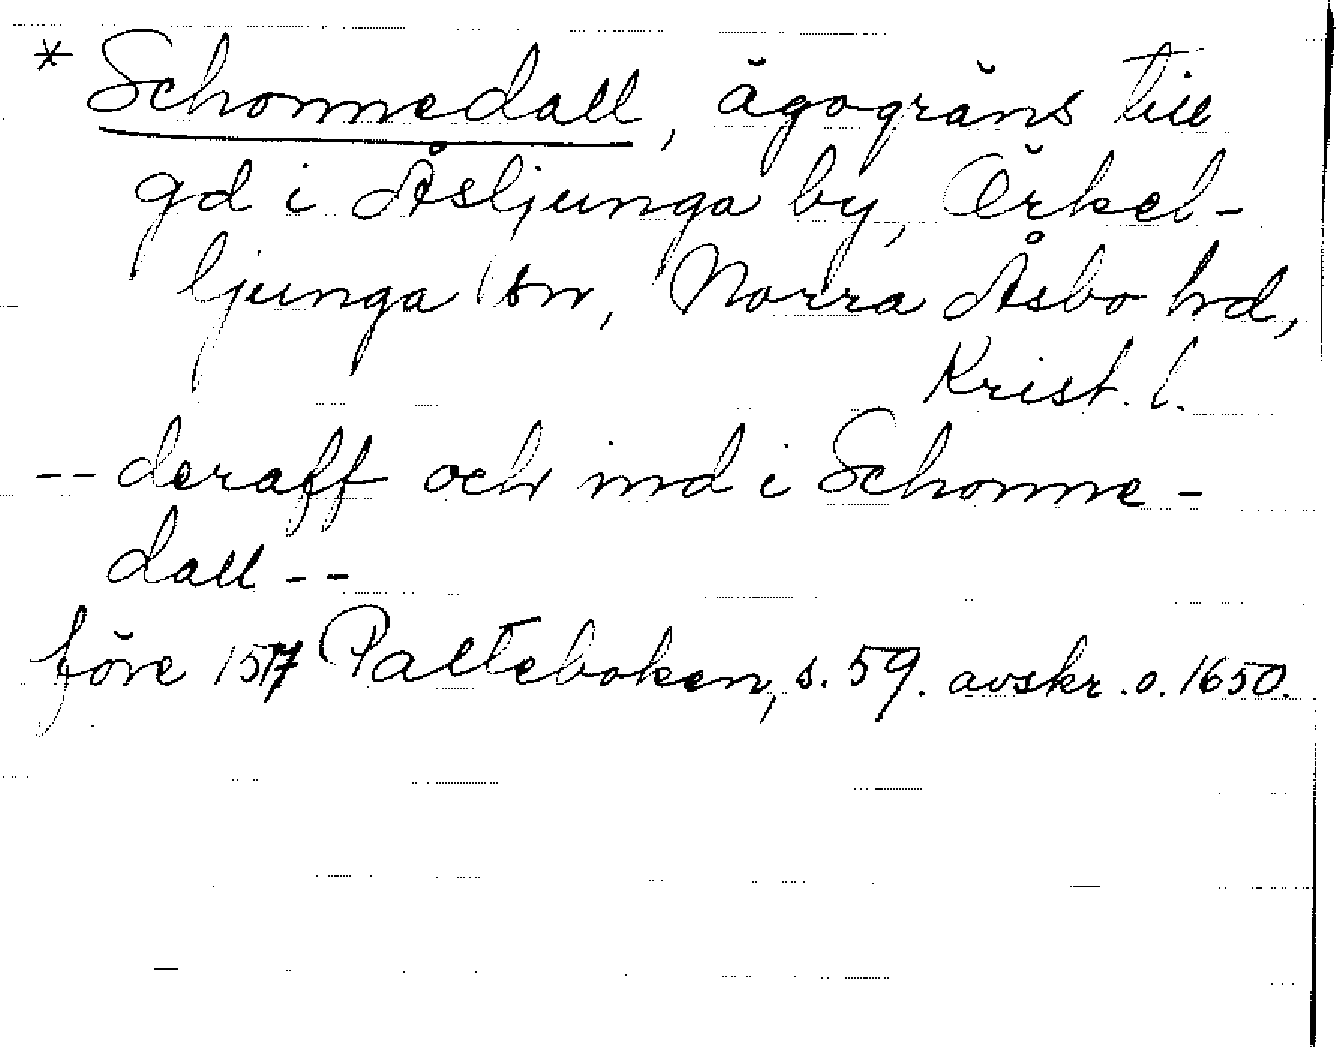 * Schonnedall, ägogräns till
gd i Åsljunga by, Örkel-
ljunga sn, Norra Åsbo hd,
Krist. l.
-- deraff och ind i Schonne-
dall --
före 1517 Palteboken, s. 59. avskr. o. 1650.